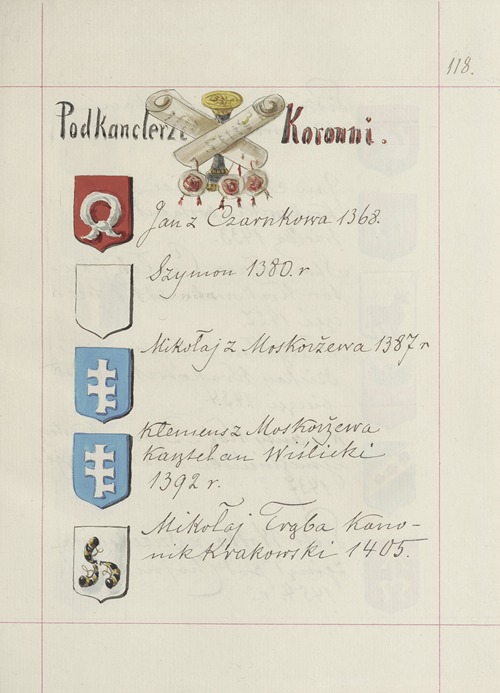 118.
Podkanclerzi Koronni.
Jan z Czarnkowa 1368.
Szymon 1380. r
Mikołaj z Moskorżewa 1387 r
Klemens z Moskorżewa
Kasztelan Wiślicki
1392 r.
Mikołaj Trąba Kano-
nik Krakowski 1405.